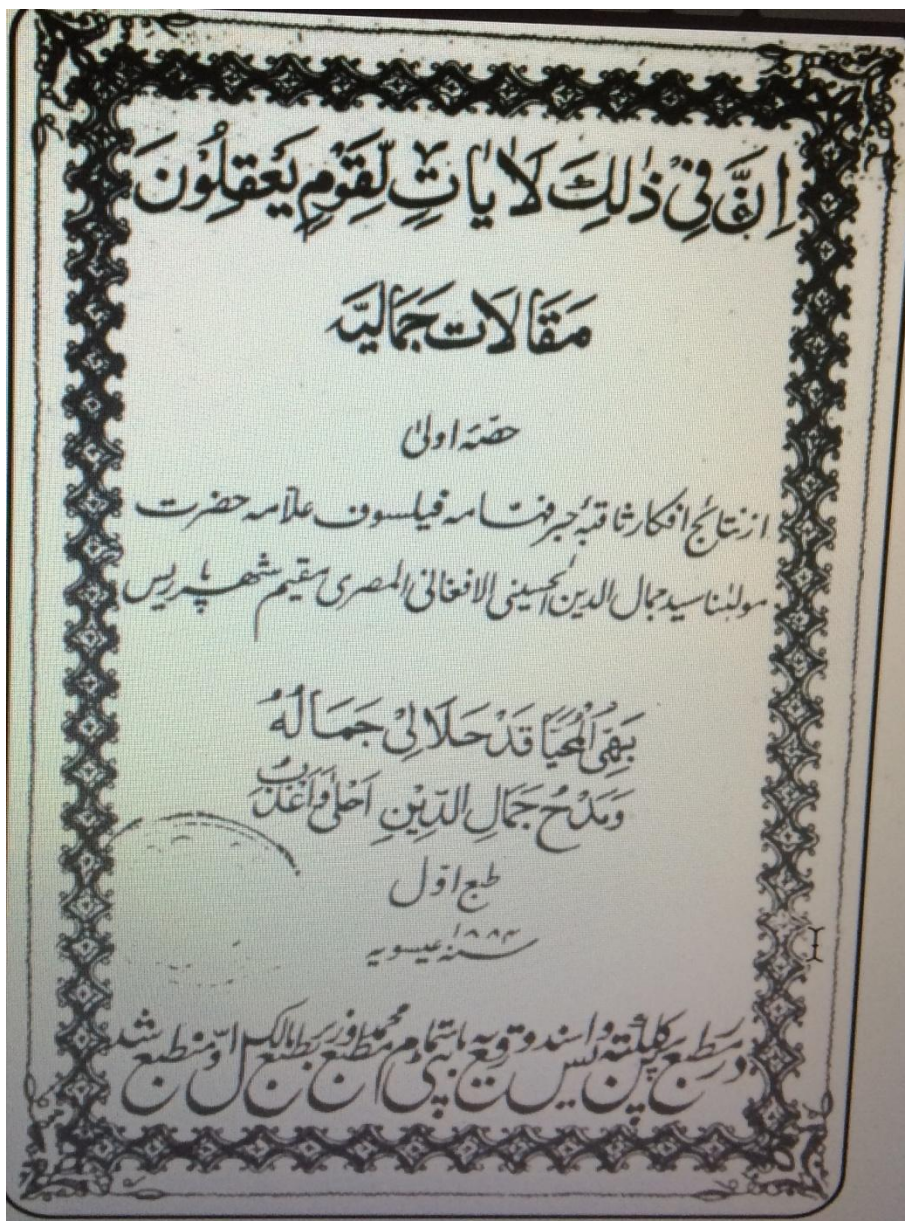 اِنَّ فِیْ ذٰلِكَ لَاٰیَاتٍ لِّقَوْمٍ یَعْقِلُوْنَ
مَقَالَات جَمَالِیَّہ
حصّہ اولیٰ
از نتائج افکار ثاقبۂ حبر فہّامہ فیلسوف علاّمہ حضرت
مولٰنا سید جمال الدین الحسینی الافغانی المصری مقیم شہر پاریس
بَهِیُّ الْمُحَیَّا قَدْ حَلَا لِیْ جَمَالُهُ
وَمَدْحُ جَمَالِ الدِّیْنِ اَحْلٰی وَاَعْذَبُ
طبع اوّل
سنہ ۱۸۸۴ عیسویہ
در مطبع کلکتہ باہتمام محمد مالک مطبع بطبع اوّل منطبع شد